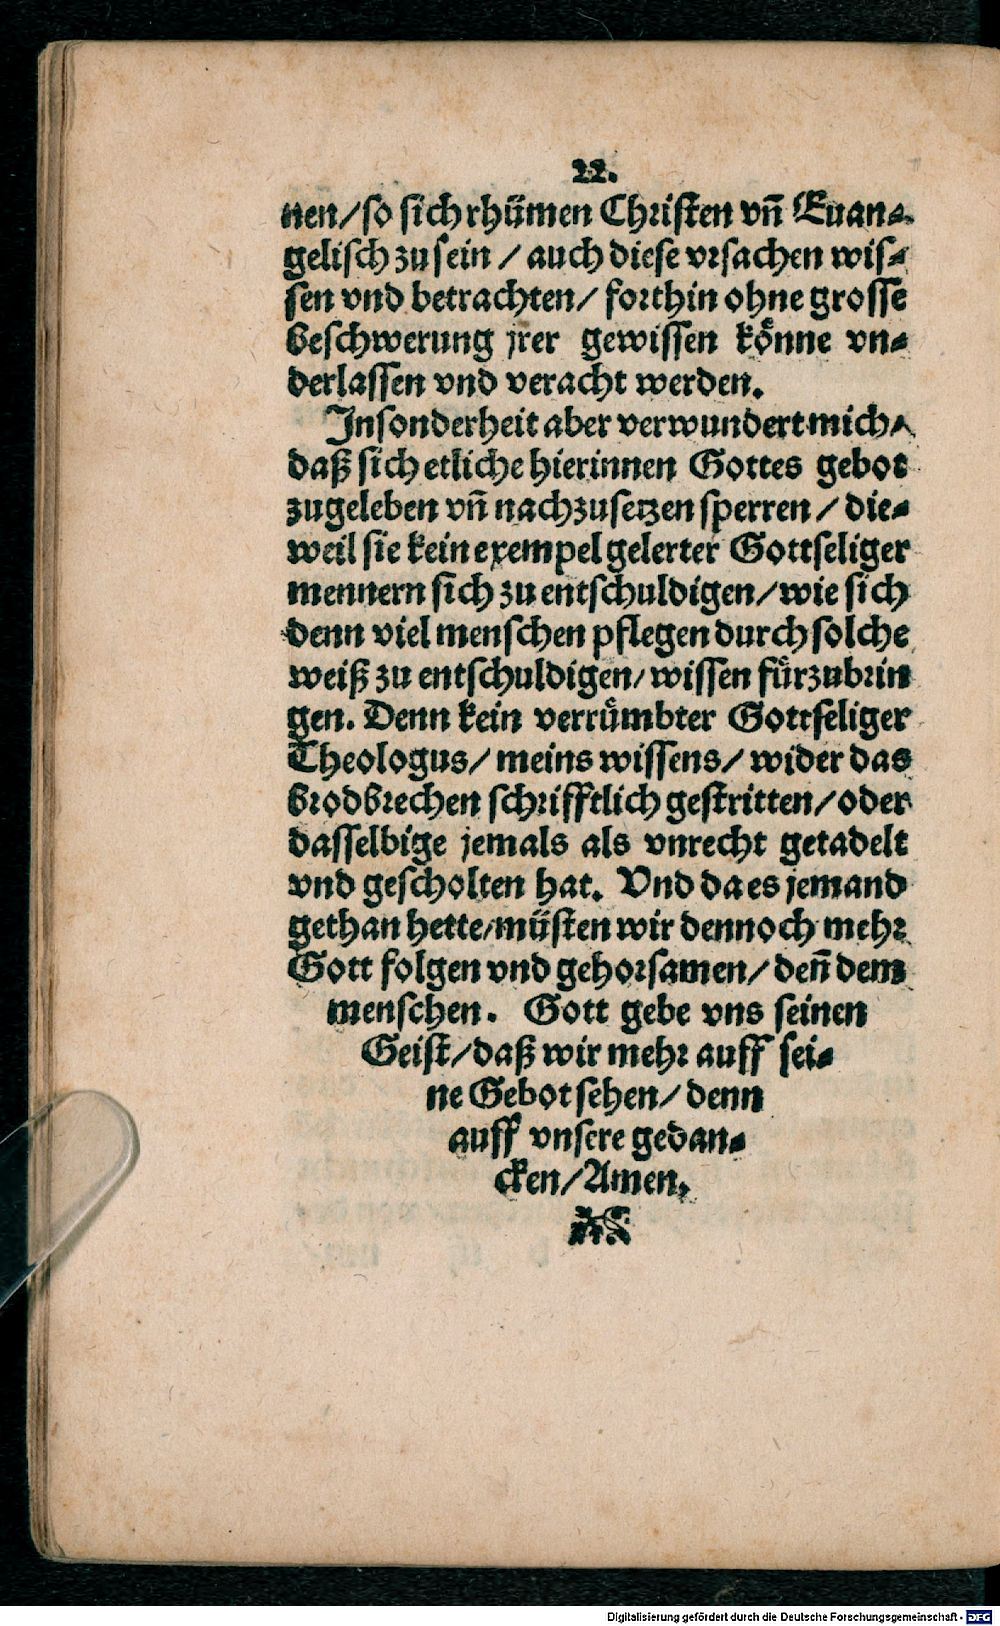 22.
nen/so sich rhümen Christen vñ Euan⸗
gelisch zu sein / auch diese vrsachen wis⸗
sen vnd betrachten/ forthin ohne grosse
beschwerung jrer gewissen koͤnne vn⸗
derlassen vnd veracht werden.
Insonderheit aber verwundert mich/
daß sich etliche hierinnen Gottes gebot
zugeleben vñ nachzusetzen sperren / die⸗
weil sie kein exempel gelerter Gottseliger
mennern sich zu entschuldigen/wie sich
denn viel menschen pflegen durch solche
weiß zu entschuldigen/ wissen fuͤrzubrin
gen. Denn kein verruͤmbter Gottseliger
Theologus/ meins wissens/ wider das
brodbrechen schrifftlich gestritten/oder
dasselbige jemals als vnrecht getadelt
vnd gescholten hat. Vnd da es jemand
gethan hette/müsten wir dennoch mehr
Gott folgen vnd gehorsamen/ deñ dem
menschen. Gott gebe vns seinen
Geist/daß wir mehr auff sei⸗
ne Gebot sehen/ denn
auff vnsere gedan⸗
cken/Amen.
Digitalisierung gefördert durch die Deutsche Forschungsgemeinschaft - DFG